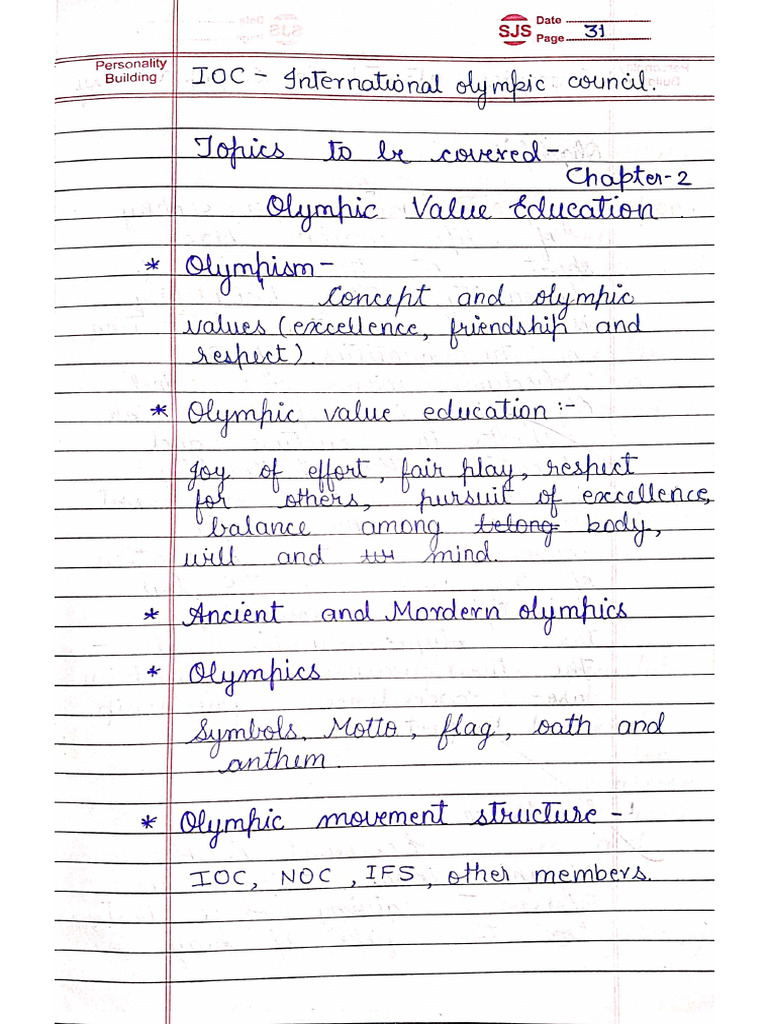 Date
SJS
Page 31
Personality
Building
IOC - International olympic council.
Topics to be covered-
Chapter-2
Olympic Value Education
* Olympism-
Concept and olympic
values (excellence, friendship and
respect).
* Olympic value education :-
joy of effort, fair play, respect
for others, pursuit of excellence,
balance among belong body,
will and mind.
* Ancient and Mordern olympics
* Olympics
Symbols, Motto, flag, oath and
anthem.
* Olympic movement structure -
IOC, NOC, IFS, other members.